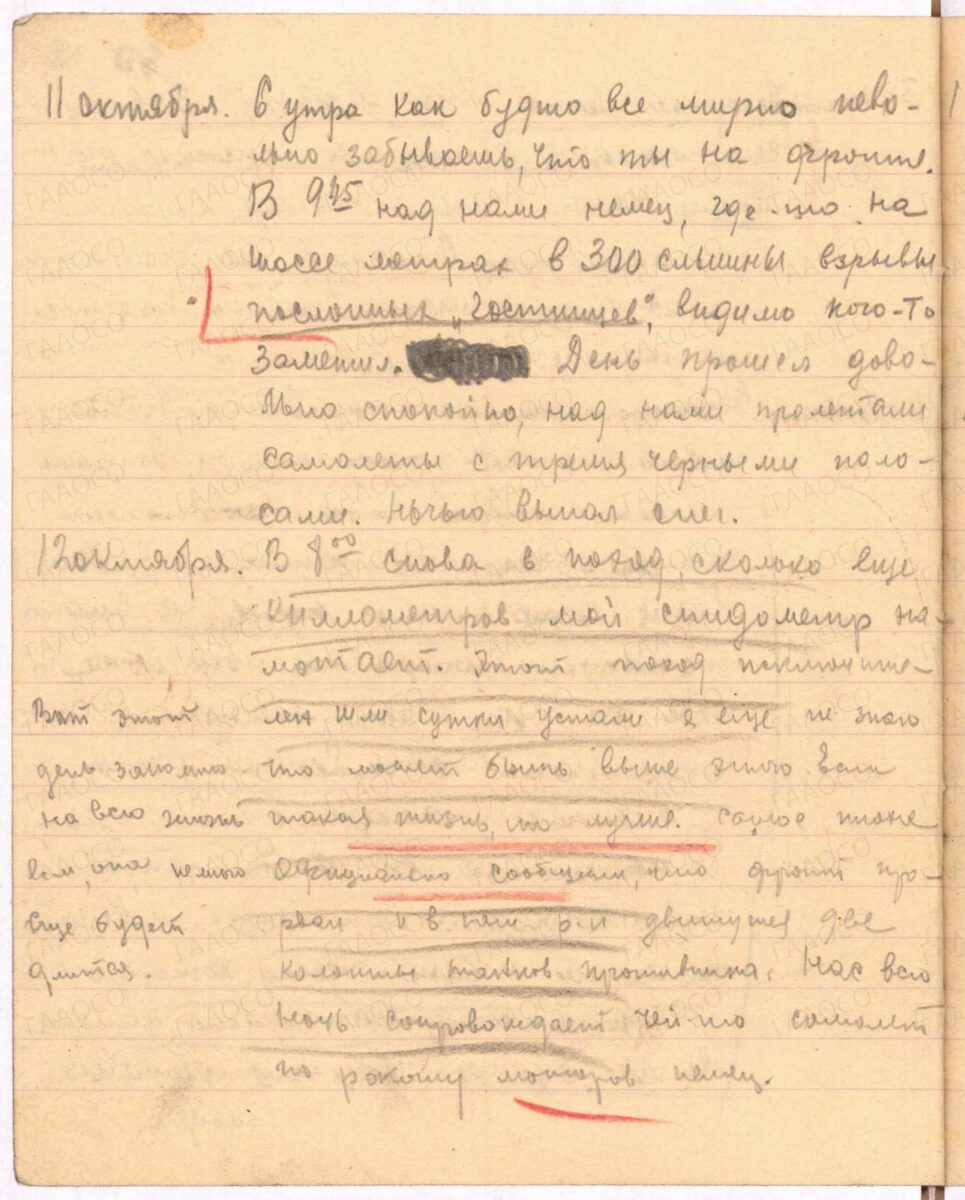 11 октября. 6 утра как будто все мирно нево-
льно забываешь, что ты на фронте.
В 9 45 над нами немец, где-то на
шоссе метрах в 300 слышны взрывы
посланных „Гостинцев", видимо кого-то
заметил. День прошел дово-
льно спокойно, над нами пролетали
самолеты с тремя черными поло-
сами. Ночью выпал снег.
12 октября. В 8 00 снова в поход, сколько еще
километров мой спидометр на-
мотает. Этот поход исключите-
лен шли сутки устали я еще не знаю
что может быть выше этого. Если
такая жизнь, то лучше. Самое
Официально сообщили, что фронт про-
рван и в наш р-н движутся две
колонны танков противника. Нас всю
ночь сопровождает чей-то самолет
по рокоту моторов немец.
Вот этот
день запомню
на всю жизнь
если она немного
еще будет
длится.